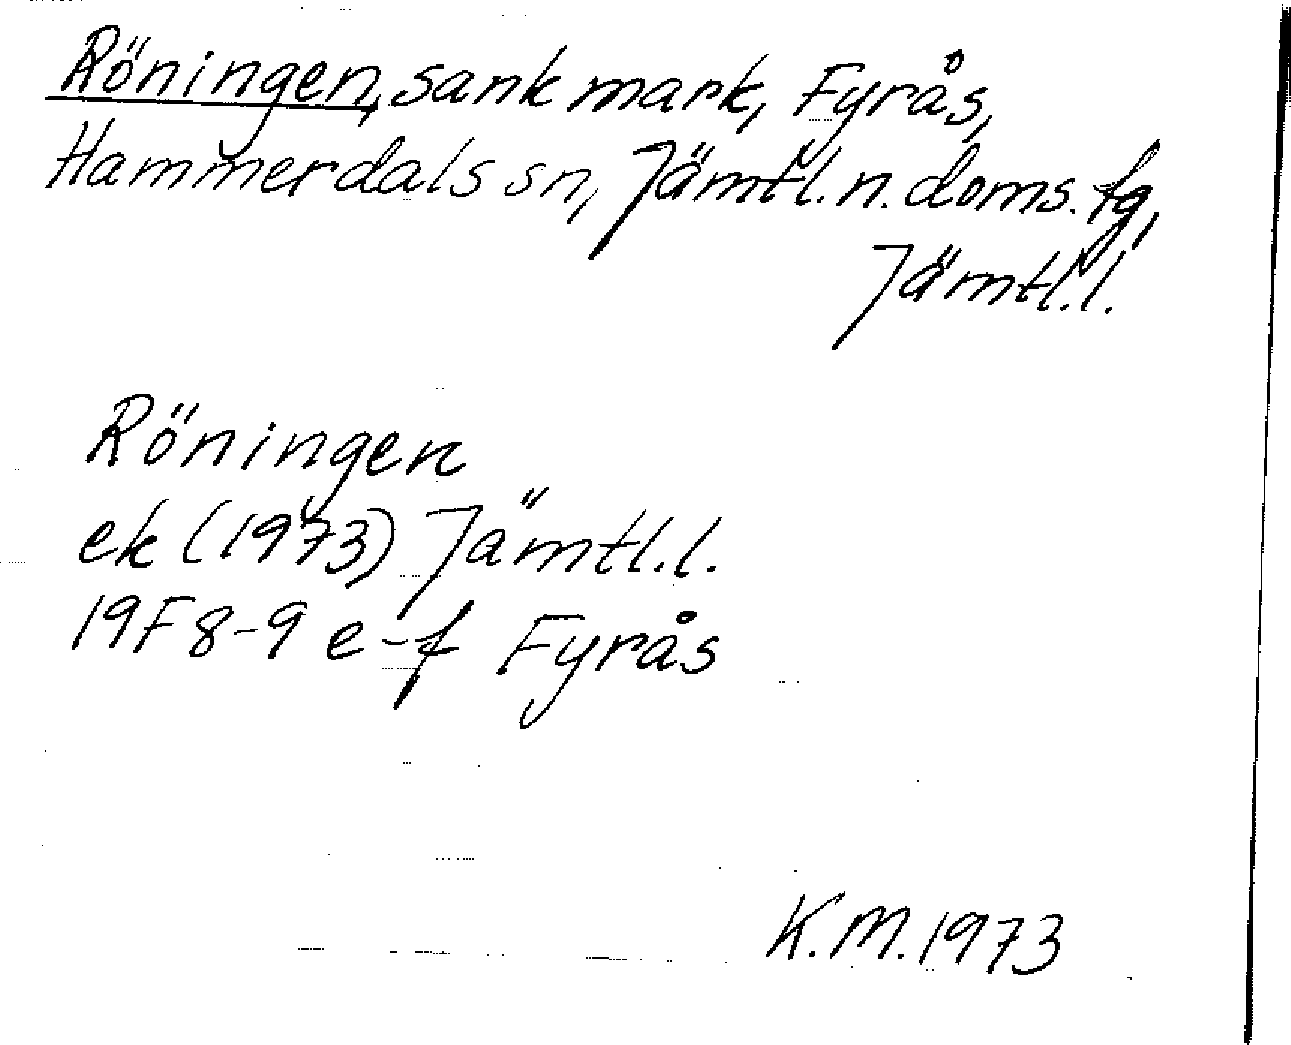 Röningen, sank mark, Fyrås,
Hammerdals sn, Jämtl. n. doms. fg,
Jämtl. l.
Röningen
ek (1973) Jämtl. l.
19F 8-9 e-f Fyrås
K.M. 1973